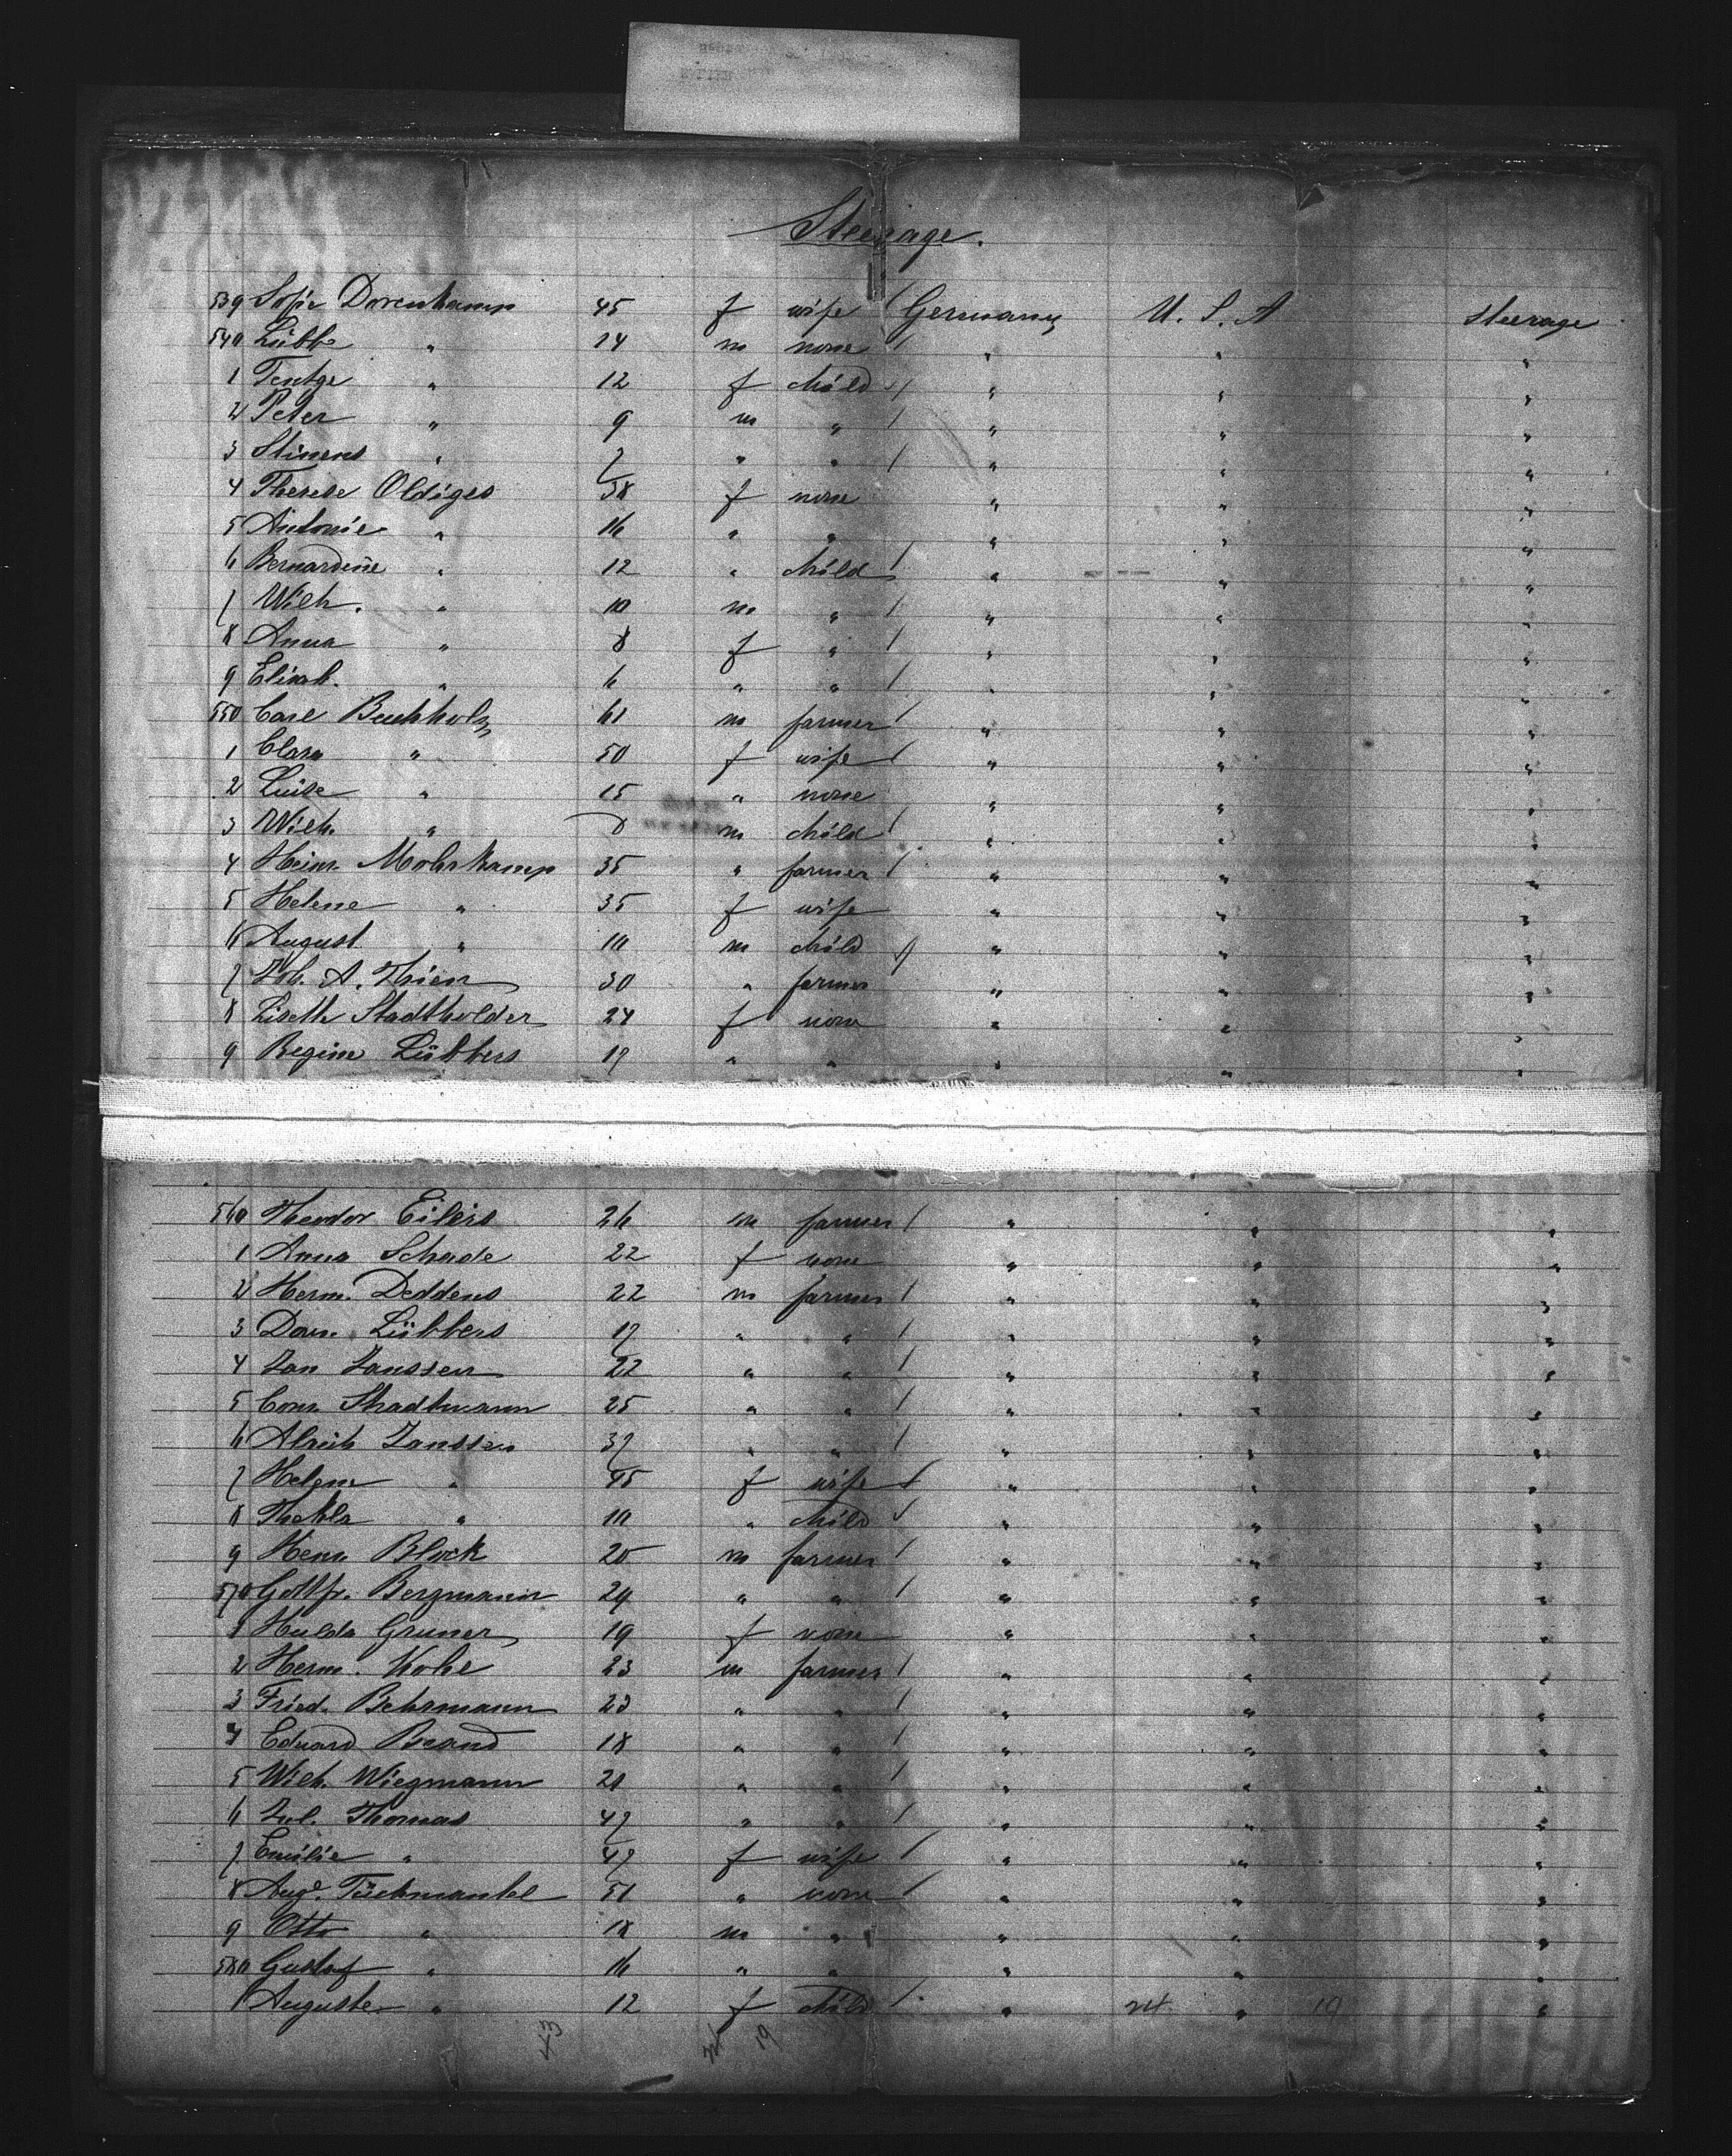 Steerage.
539 Sofie Dorenkamp 45 f wife Germany U. S. A steerage
540 Lübbe " 14 m none " " "
1 Tentge " 12 f child " " "
2 Peter " 9 m " " " "
3 Stinens " 7 " " " " "
4 Therese Oldiges 38 f none " " "
5 Antonie " 16 " " " " "
6 Bernardine " 12 " child " " "
7 Wilh. " 10 m " " " "
8 Anna " 8 f " " " "
9 Elisab. " 6 " " " " "
550 Carl Buchholz 61 m farmer " " "
1 Clara " 50 f wife " " "
2 Luise " 15 " none " " "
3 Wilh. " 8 m child " " "
4 Heinr. Mohrkamp 35 " farmer " " "
5 Helene " 35 f wife " " "
6 August " 10 m child " " "
7 Joh. A. Thien 30 " farmer " " "
8 Liseth Stadtholder 24 f none " " "
9 Regine Lübbers 19 " " " " "
560 Theodor Eilers 26 m farmer " " "
1 Anna Schade 22 f none " " "
2 Herm. Deddens 22 m farmer " " "
3 Lübbers 17 " " " " "
4 Jan Janssen 22 " " " " "
5 Stadtmann 25 " " " " "
6 Janssen 37 " " " " "
7 Helene " 45 f wife " " "
8 Thekla " 10 " child " " "
9 Block 20 m farmer " " "
570 Gottfr. Bergmann 29 " " " " "
1 Hulda Gruner 19 f none " " "
2 Herm. 23 m farmer " " "
3 Fried. Behrmann 23 " " " " "
4 Eduard Brand 18 " " " " "
5 Wilh. Wiegmann 21 " " " " "
6 Jul. Thomas 47 " " " " "
7 Emilie " 47 f wife " " "
8 Augе. Tückmantel 51 " none " " "
9 Otto " 18 m " " " "
580 Gustaf " 16 " " " " "
1 Auguste " 12 f child " 24 " 19 "
43 24 19